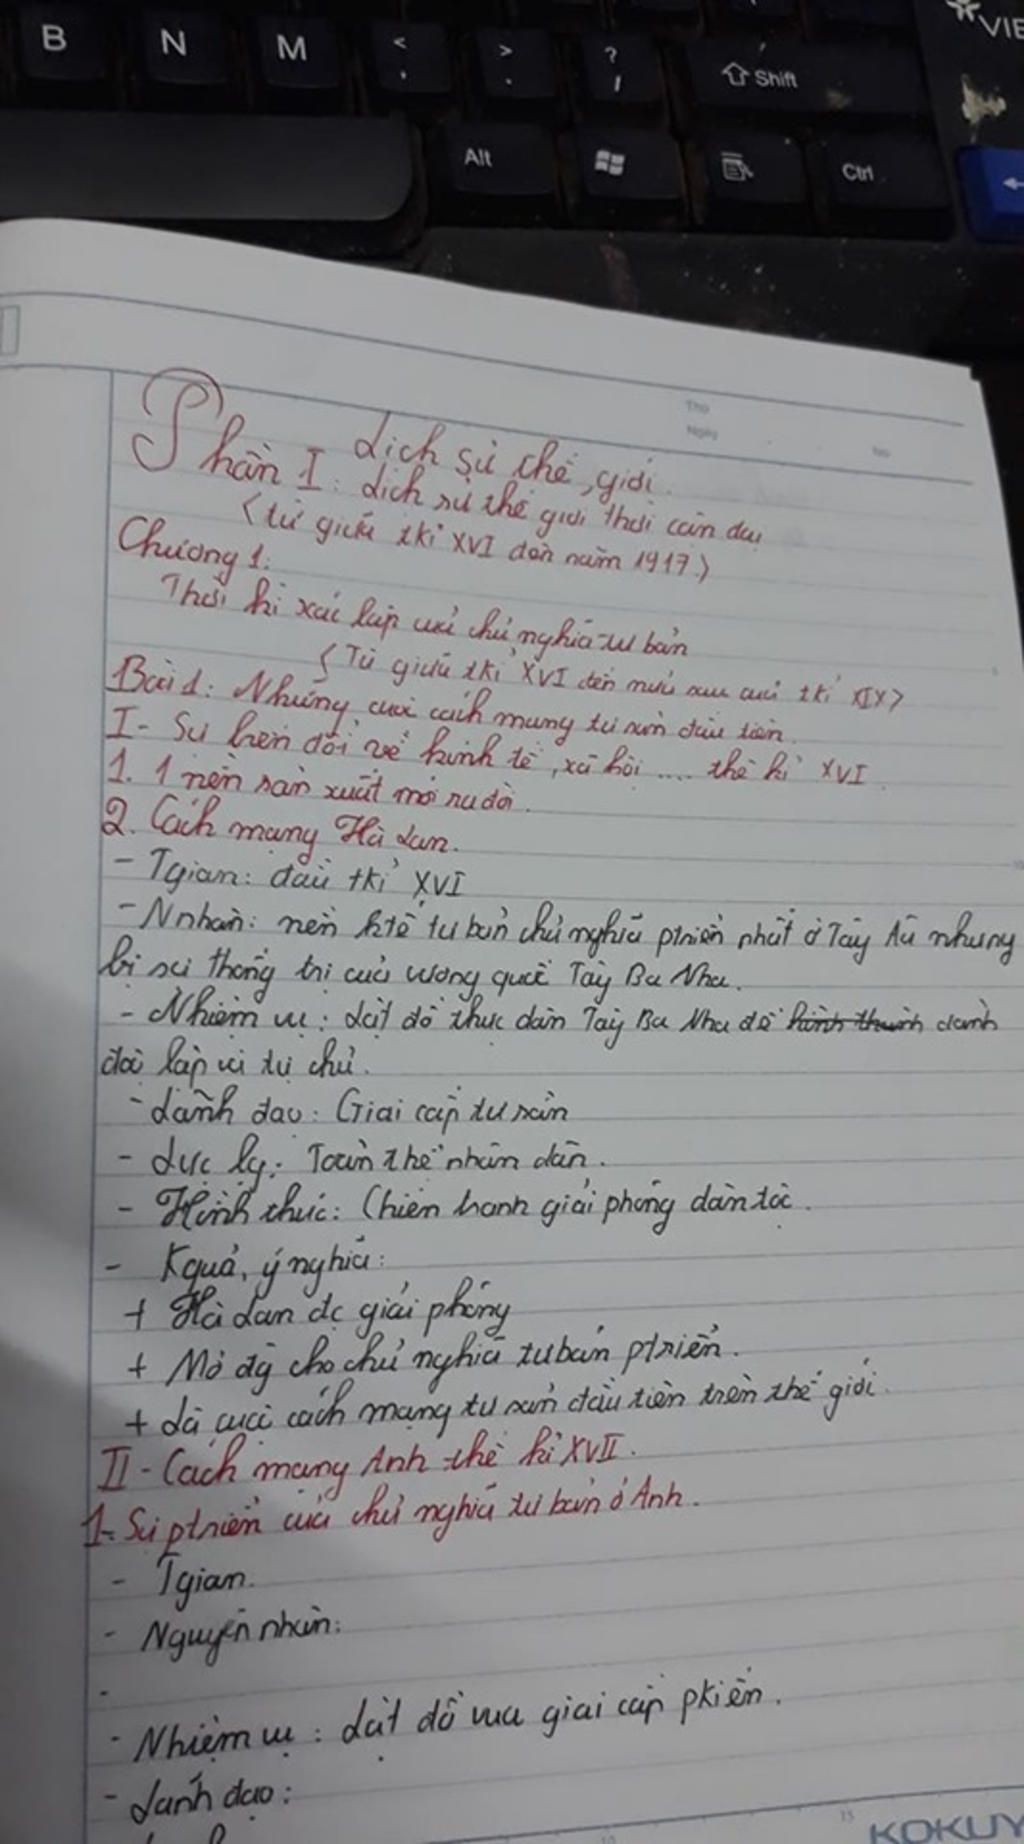 B N M < , > . ? / Shift
VIE
Alt Ctrl
Thứ
Ngày No
Lịch sử thế giới.
Phần I: Lịch sử thế giới thời cận đại
(từ giữa tkỉ XVI đến năm 1917)
Chương 1:
Thời kì xác lập của chủ nghĩa tư bản
(Từ giữa tkỉ XVI đến nửa sau cuối tkỉ XIX)
Bài 1: Những cuộc cách mạng tư sản đầu tiên.
I- Sự biến đổi về kinh tế, xã hội .... thế kỉ XVI.
1. 1 nền sản xuất mới ra đời.
2. Cách mạng Hà Lan.
- Tgian: đầu tkỉ XVI
- Nnhân: nền ktế tư bản chủ nghĩa ptriển nhất ở Tây Âu nhưng
bị sự thống trị của vương quốc Tây Ba Nha.
- Nhiệm vụ: Lật đổ thực dân Tây Ba Nha để hình thành dành
độc lập và tự chủ.
- Lãnh đạo: Giai cấp tư sản
- Lực lg: Toàn thể nhân dân.
- Hình thức: Chiến tranh giải phóng dân tộc.
- Kquả, ý nghĩa:
+ Hà Lan đc giải phóng
+ Mở đg cho chủ nghĩa tư bản ptriển.
+ Là cuộc cách mạng tư sản đầu tiên trên thế giới.
II- Cách mạng Anh thế kỉ XVII.
1- Sự ptriển của chủ nghĩa tư bản ở Anh.
- Tgian.
- Nguyên nhân:
-
- Nhiệm vụ: Lật đổ vua giai cấp pkiến.
- Lãnh đạo:
KOKUY